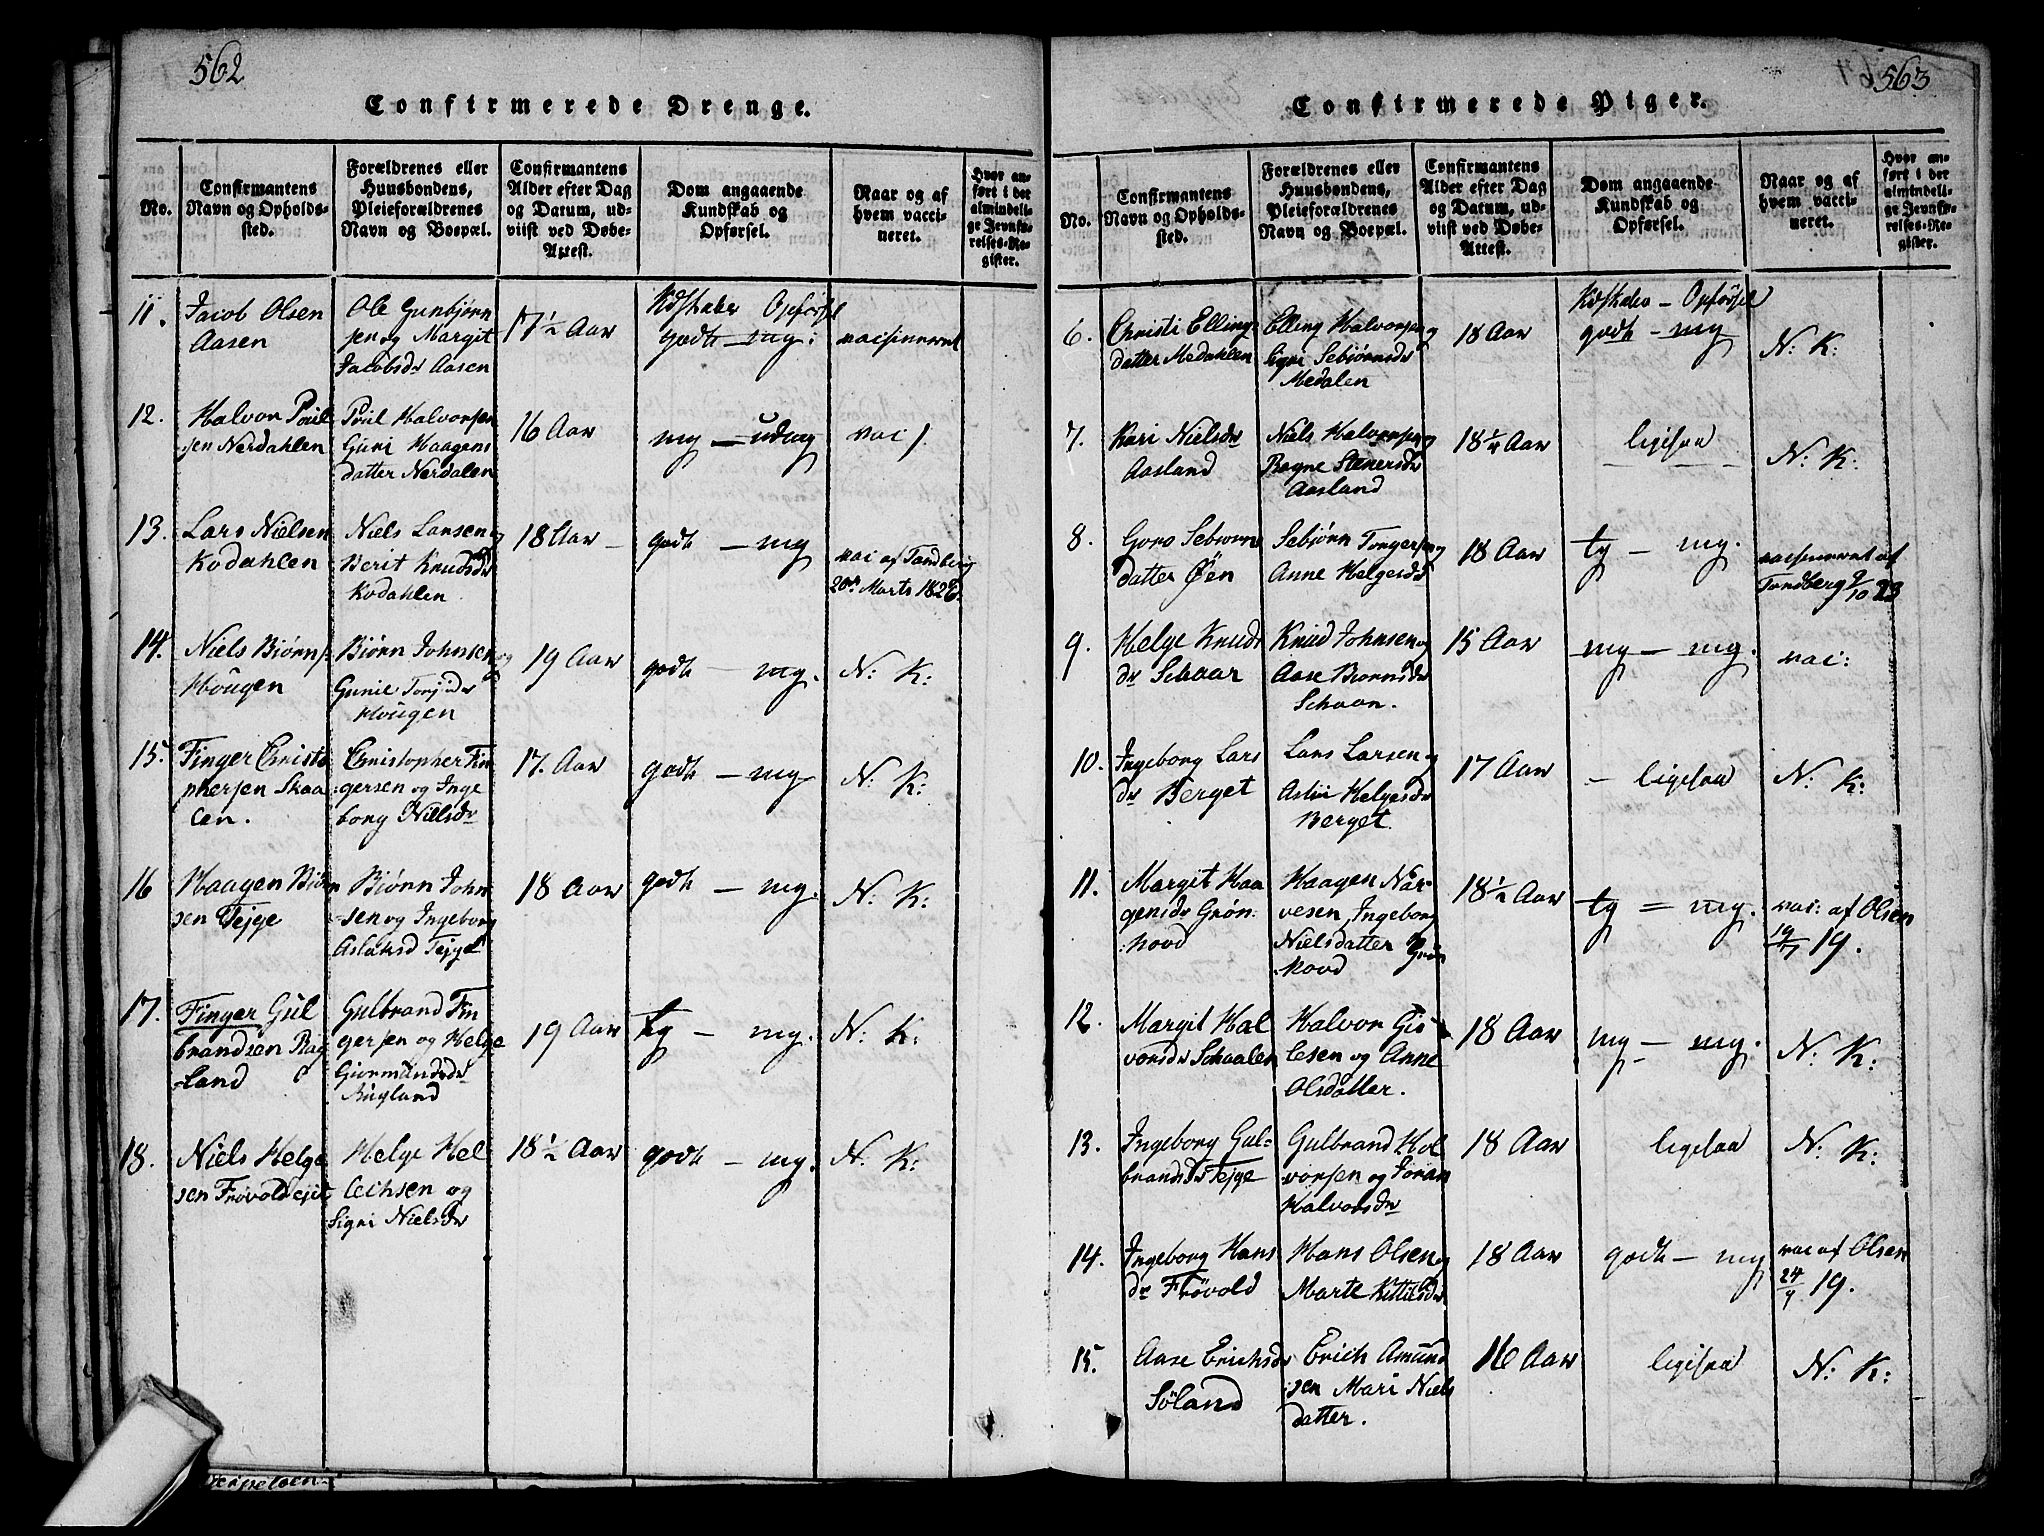 562
Confirmerede Drenge.
No.
Confirmantens
Navn og Opholds-
sted.
Forældrenes eller
Huusbondens,
Pleieforældrenes
Navn og Boepæl.
Confirmantens
Alder efter Dag
og Datum, ud-
viist ved Døbe-
Attest.
Dom angaaende
Kundskab og
Opførsel.
Naar og af
hvem vacci-
neret.
Hvor an-
ført i det
almindeli-
ge Jevnfø-
relses-Re-
gister.
11.
Jacob Olsen
Aasen
Ole Gunbjørn
sen og Margit
Jacobsdr Aasen
17½ Aar
Kdskaber Opførsel
godt — mg:
vaccineret
12.
Halvor Poul
sen Nerdahlen
Poul Halvorsen
Guri Haagens
datter Nerdalen
16 Aar
mg — udmg
vac
13.
Lars Nielsen
Kodahlen
Niels Larsen og
Berit Knudsdr
Kodahlen
18 Aar —
godt — mg
vac af Tandberg
20de Marts 1826.
14.
Niels Biørns
Hougen
Biørn Johnsen og
Gunil Torjidr
Hougen
19 Aar
godt — mg.
N: K:
15.
Finger Christo
phersen Skaa
len.
Christopher Fin
gersen og Inge
borg Nielsdr
17. Aar
godt — mg
N: K:
16
Haagen Biørn
sen Tejge
Biørn John
sen og Ingeborg
Aslaksd Tejge
18 Aar
godt — mg.
N: K:
17.
Finger Gul
brandsen Rug
land
Gulbrand Fin
gersen og Helge
Giermundsdr
Rugland
19 Aar
tg — mg.
N: K:
18.
Niels Helge
sen Frøvold ejet
Helge Hel
lechsen og
Sigri Nielsdr
18½ Aar
godt — mg.
N: K:
563
Confirmerede Piger.
No.
Confirmantens
Navn og Opholds-
sted.
Forældrenes eller
Huusbondens,
Pleieforældrenes
Navn og Boepæl.
Confirmantens
Alder efter Dag
og Datum, ud-
viist ved Døbe-
Attest.
Dom angaaende
Kundskab og
Opførsel.
Naar og af
hvem vacci-
neret.
Hvor an-
ført i det
almindeli-
ge Jevnfø-
relses-Re-
gister.
6.
Christi Ellings
datter Medahlen
Elling Halvorsen og
Sigri Sebiørnsdr
Medalen
18 Aar
Kdskaber — Opførsel
godt — mg
N: K:
7.
Kari Nielsdr
Aasland
Niels Halvorsen og
Bogne Stenersdr
Aasland
18¼ Aar
ligesaa
N: K:
8.
Goro Sebiørns
datter Øen
Sebiørn Torgersen og
Anne Helgesdr
18 Aar
tg — mg.
vaccineret af
Tandberg 9/10 23
9.
Helge Knuds
dr Schaar
Knud Johnsen og
Aase Biørnsdr
Schaar.
15 Aar
mg — mg.
vac:
10.
Ingeborg Lars
dr Berget
Lars Larsen og
Astri Helgesdr
Berget
17 Aar
— ligesaa
N: K:
11.
Margit Haa
gensdr Grøn:
hovd
Haagen Nar-
vesen, Ingeborg
Nielsdatter Grøn
hovd
18½ Aar
tg = mg.
vac: af Olsen
19/7 19.
12.
Margit Hal
vorsdr Schaalen
Halvor Gis
lesen og Anne
Olsdatter.
18 Aar
mg — mg.
N: K:
13.
Ingeborg Gul-
brandsdr Tejge
Gulbrand Hal
vorsen og Joran
Halvorsdr
18 Aar
ligesaa
N: K:
14.
Ingeborg Hans
dr Frøvold
Hans Olsen og
Marte Kittilsdr
18 Aar
godt — mg
vac af Olsen
24/9 19.
15.
Aase Erichsdr
Søland
Erich Amund
sen Mari Niels
datter.
16 Aar
ligesaa
N: K: